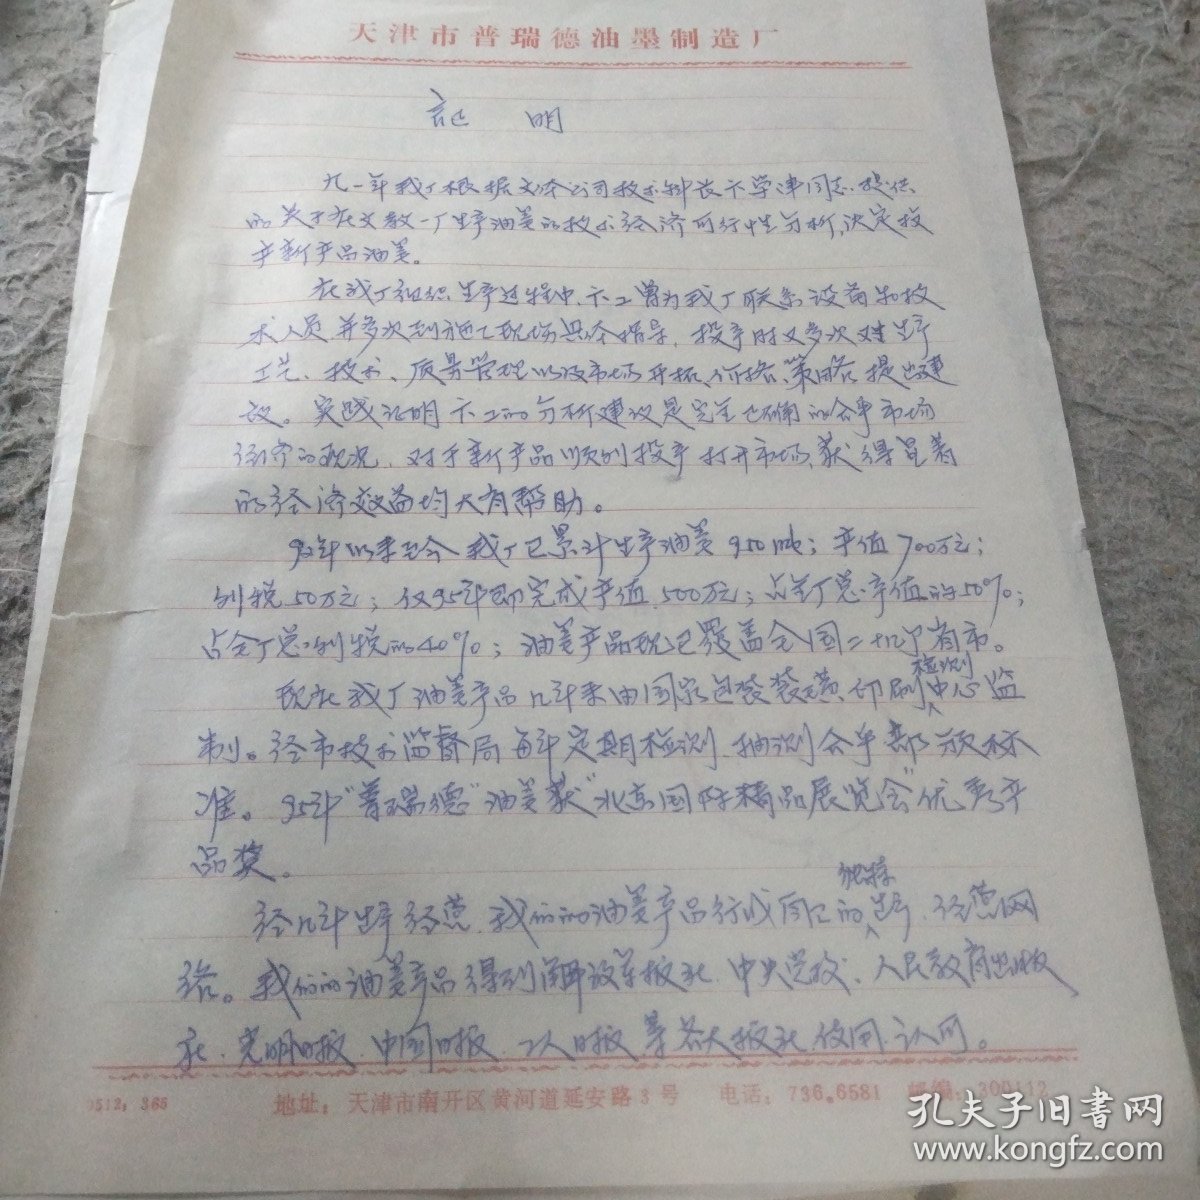 天津市普瑞德油墨制造厂
证 明
九一年我厂根据文体公司技术科长卞学津同志提供
的关于在文教一厂生产油墨的技术经济可行性分析,决定投
产新产品油墨。
在我厂组织生产过程中,卞工曾为我厂联系设备和技
术人员并多次到施工现场具体指导,投产时又多次对生产
工艺、技术、质量管理以及市场开拓、价格、策略提出建
议。实践证明卞工的分析建议是完全正确的合乎市场
经济的现况,对于新产品顺利投产打开市场,获得显著
的经济效益均大有帮助。
92年以来至今我厂已累计生产油墨950吨;产值700万元;
利税50万元;仅95年即完成产值500万元;占全厂总产值的50%;
占全厂总利税的40%;油墨产品现已覆盖全国二十几个省市。
现在我厂油墨产品几年来由国家包装装潢印刷检测中心监
制。经市技术监督局每年定期检测、抽测合乎部颁标
准。95年“普瑞德”油墨获“北京国际精品展览会”优秀产
品奖。
经几年生产经营,我们的油墨产品形成自己的独特生产、经营网
络。我们的油墨产品得到解放军报社、中央党校、人民教育出版
社、光明日报、中国日报、工人日报等各大报社使用、认同。
9512:365 地址:天津市南开区黄河道延安路3号 电话:736.6581 邮编:300112
孔夫子旧书网
www.kongfz.com